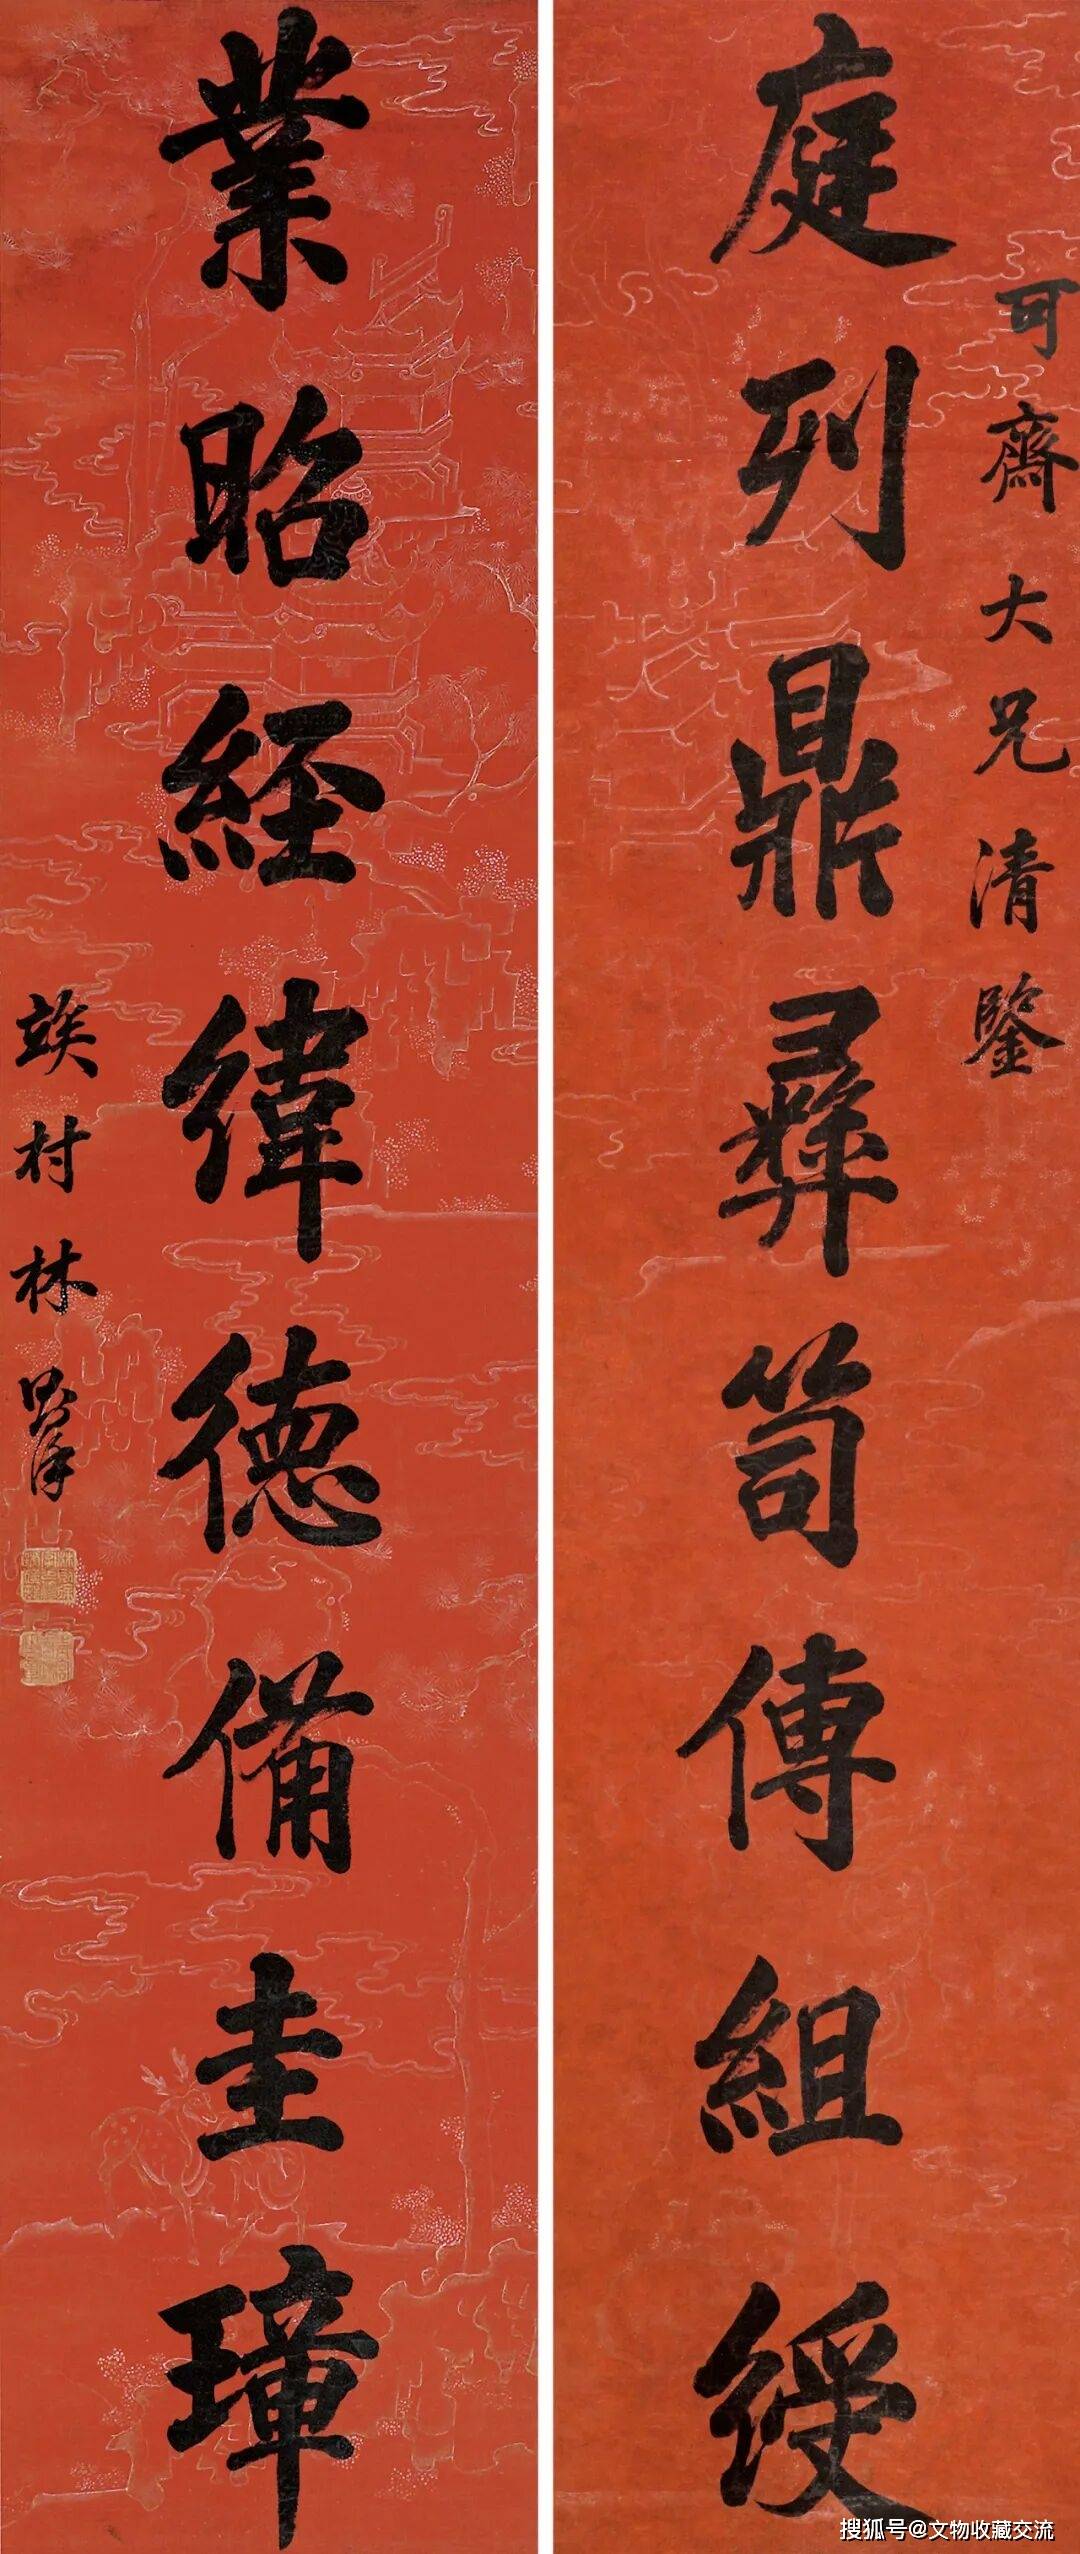 可齋大兄清鑒
庭列鼎彝笥傳組綬
業昭經緯德備圭璋
竢村林則徐
搜狐号@文物收藏交流